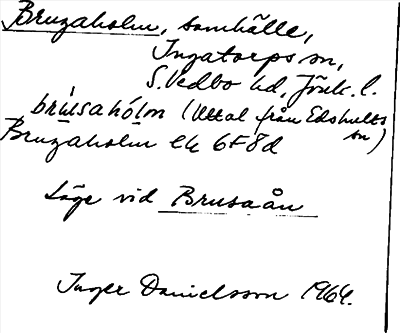 Bruzaholm, samhälle,
Ingatorps sn,
S. Vedbo hd, Jönk. l.
brùsahólm (Uttal från Edshults sn)
Bruzaholm ek 6F8d
Läge vid Brusaån
Inger Danielsson 1964.